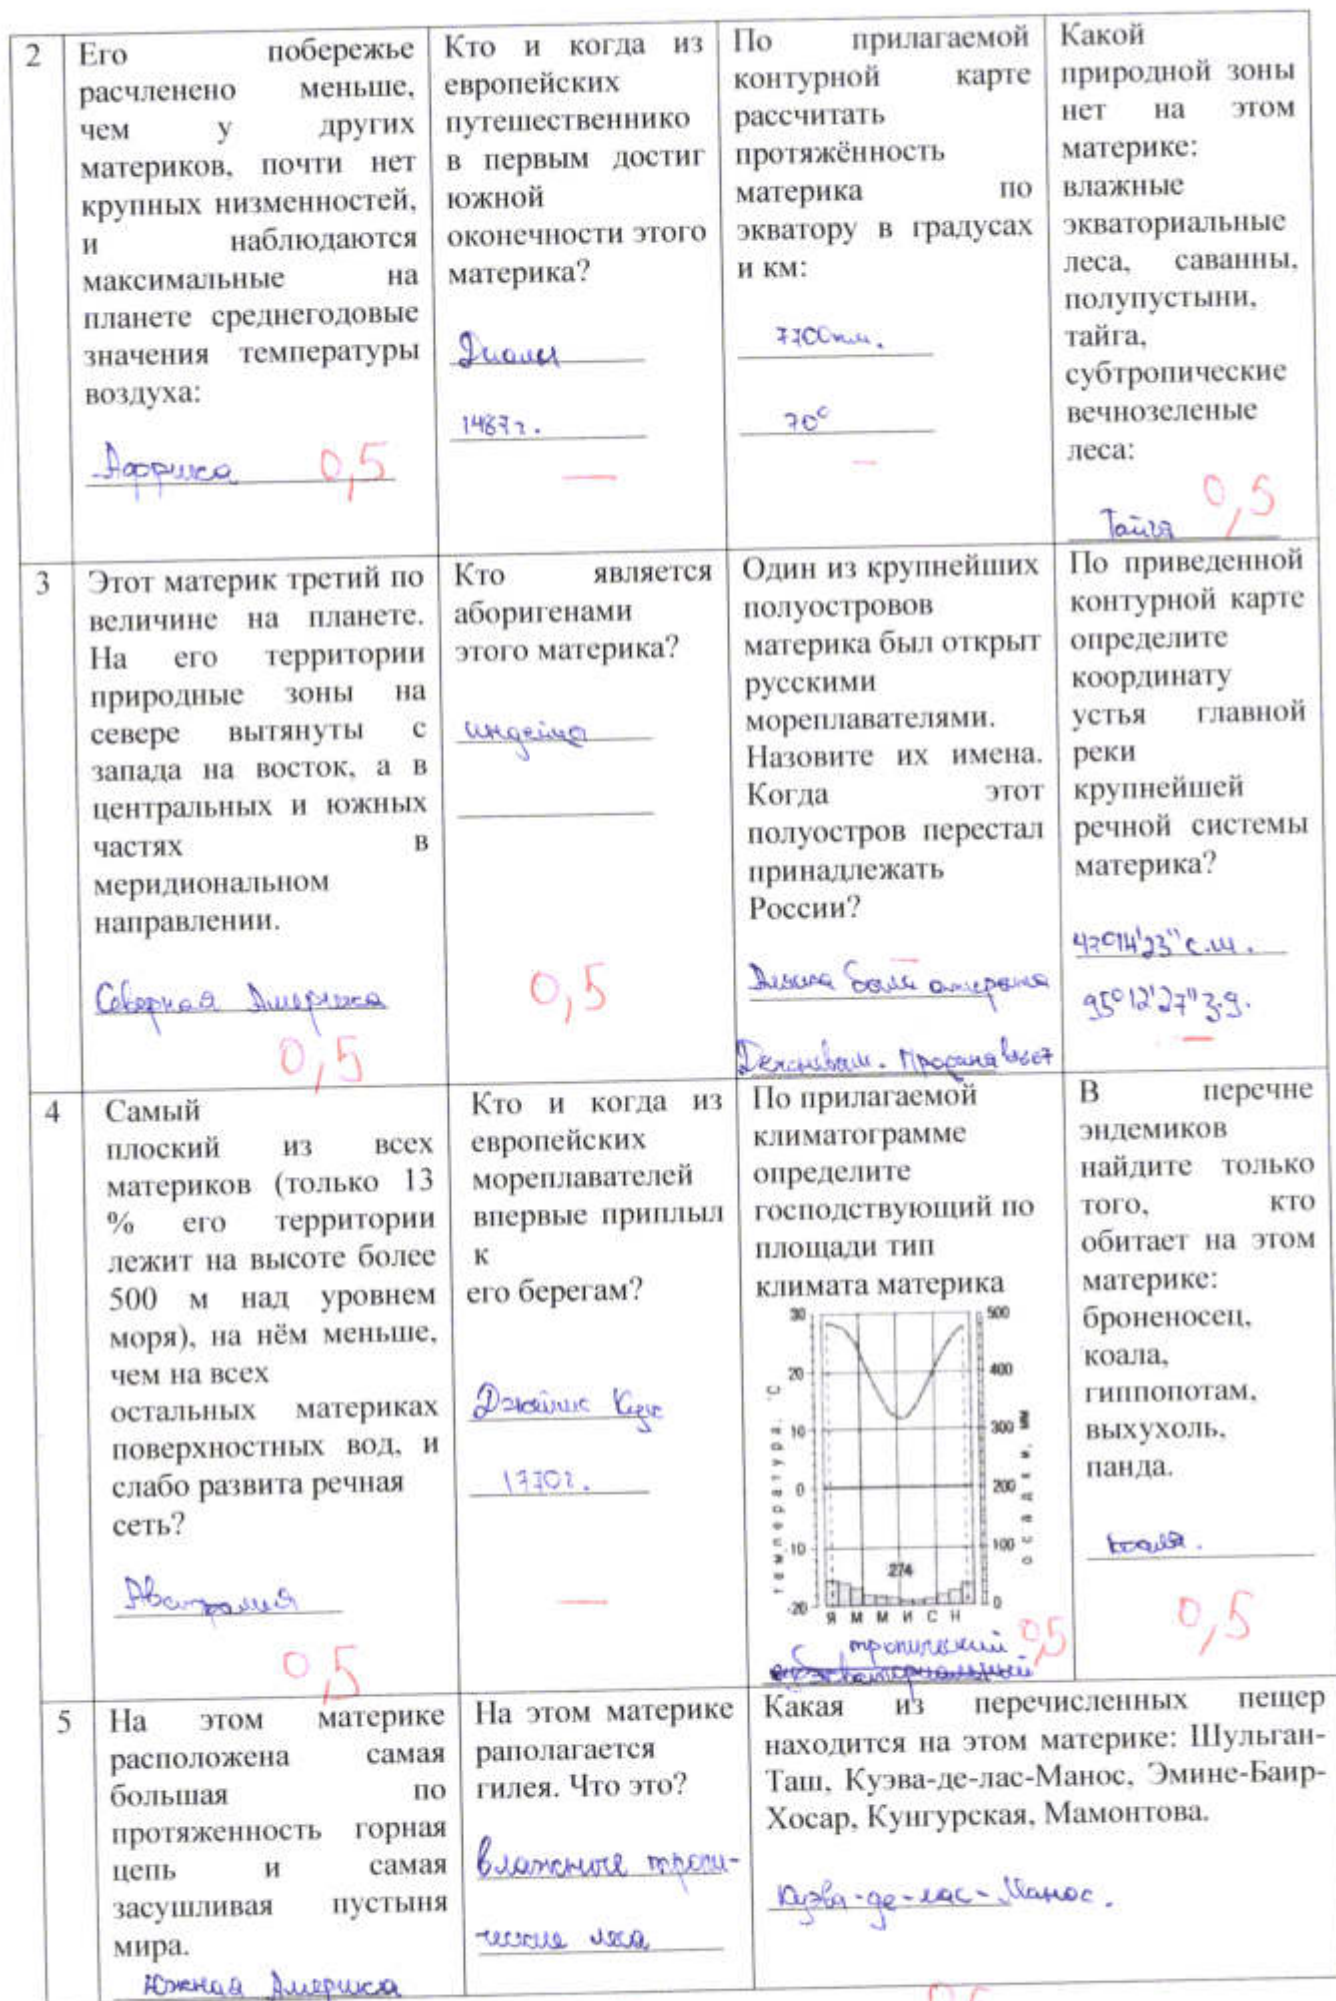 2
Его побережье
расчленено меньше,
чем у других
материков, почти нет
крупных низменностей,
и наблюдаются
максимальные на
планете среднегодовые
значения температуры
воздуха:
Аффрика 0,5
Кто и когда из
европейских
путешественнико
в первым достиг
южной
оконечности этого
материка?
1487г.
—
По прилагаемой
контурной карте
рассчитать
протяжённость
материка по
экватору в градусах
и км:
7700км.
70°
—
Какой
природной зоны
нет на этом
материке:
влажные
экваториальные
леса, саванны,
полупустыни,
тайга,
субтропические
вечнозеленые
леса:
0,5
Тайга
3
Этот материк третий по
величине на планете.
На его территории
природные зоны на
севере вытянуты с
запада на восток, а в
центральных и южных
частях в
меридиональном
направлении.
Северная Америка
0,5
Кто является
аборигенами
этого материка?
индейцы
0,5
Один из крупнейших
полуостровов
материка был открыт
русскими
мореплавателями.
Назовите их имена.
Когда этот
полуостров перестал
принадлежать
России?
—
была открыта
Продана в 1867
По приведенной
контурной карте
определите
координату
устья главной
реки
крупнейшей
речной системы
материка?
47°14'23" с.ш.
95°12'27" з.д.
—
4
Самый
плоский из всех
материков (только 13
% его территории
лежит на высоте более
500 м над уровнем
моря), на нём меньше,
чем на всех
остальных материках
поверхностных вод, и
слабо развита речная
сеть?
Австралия
0,5
Кто и когда из
европейских
мореплавателей
впервые приплыл
к
его берегам?
Джеймс Кук
1770г.
—
По прилагаемой
климатограмме
определите
господствующий по
площади тип
климата материка
30
20
10
0
-10
-20
температура, °C
500
400
300
200
100
0
осадки, мм
274
Я М М И С Н
тропический 0,5
В перечне
эндемиков
найдите только
того, кто
обитает на этом
материке:
броненосец,
коала,
гиппопотам,
выхухоль,
панда.
коала.
0,5
5
На этом материке
расположена самая
большая по
протяженность горная
цепь и самая
засушливая пустыня
мира.
Южная Америка
На этом материке
раполагается
гилея. Что это?
влажные тропи-
ческие леса
Какая из перечисленных пещер
находится на этом материке: Шульган-
Таш, Куэва-де-лас-Манос, Эмине-Баир-
Хосар, Кунгурская, Мамонтова.
Куэва-де-лас-Манос.